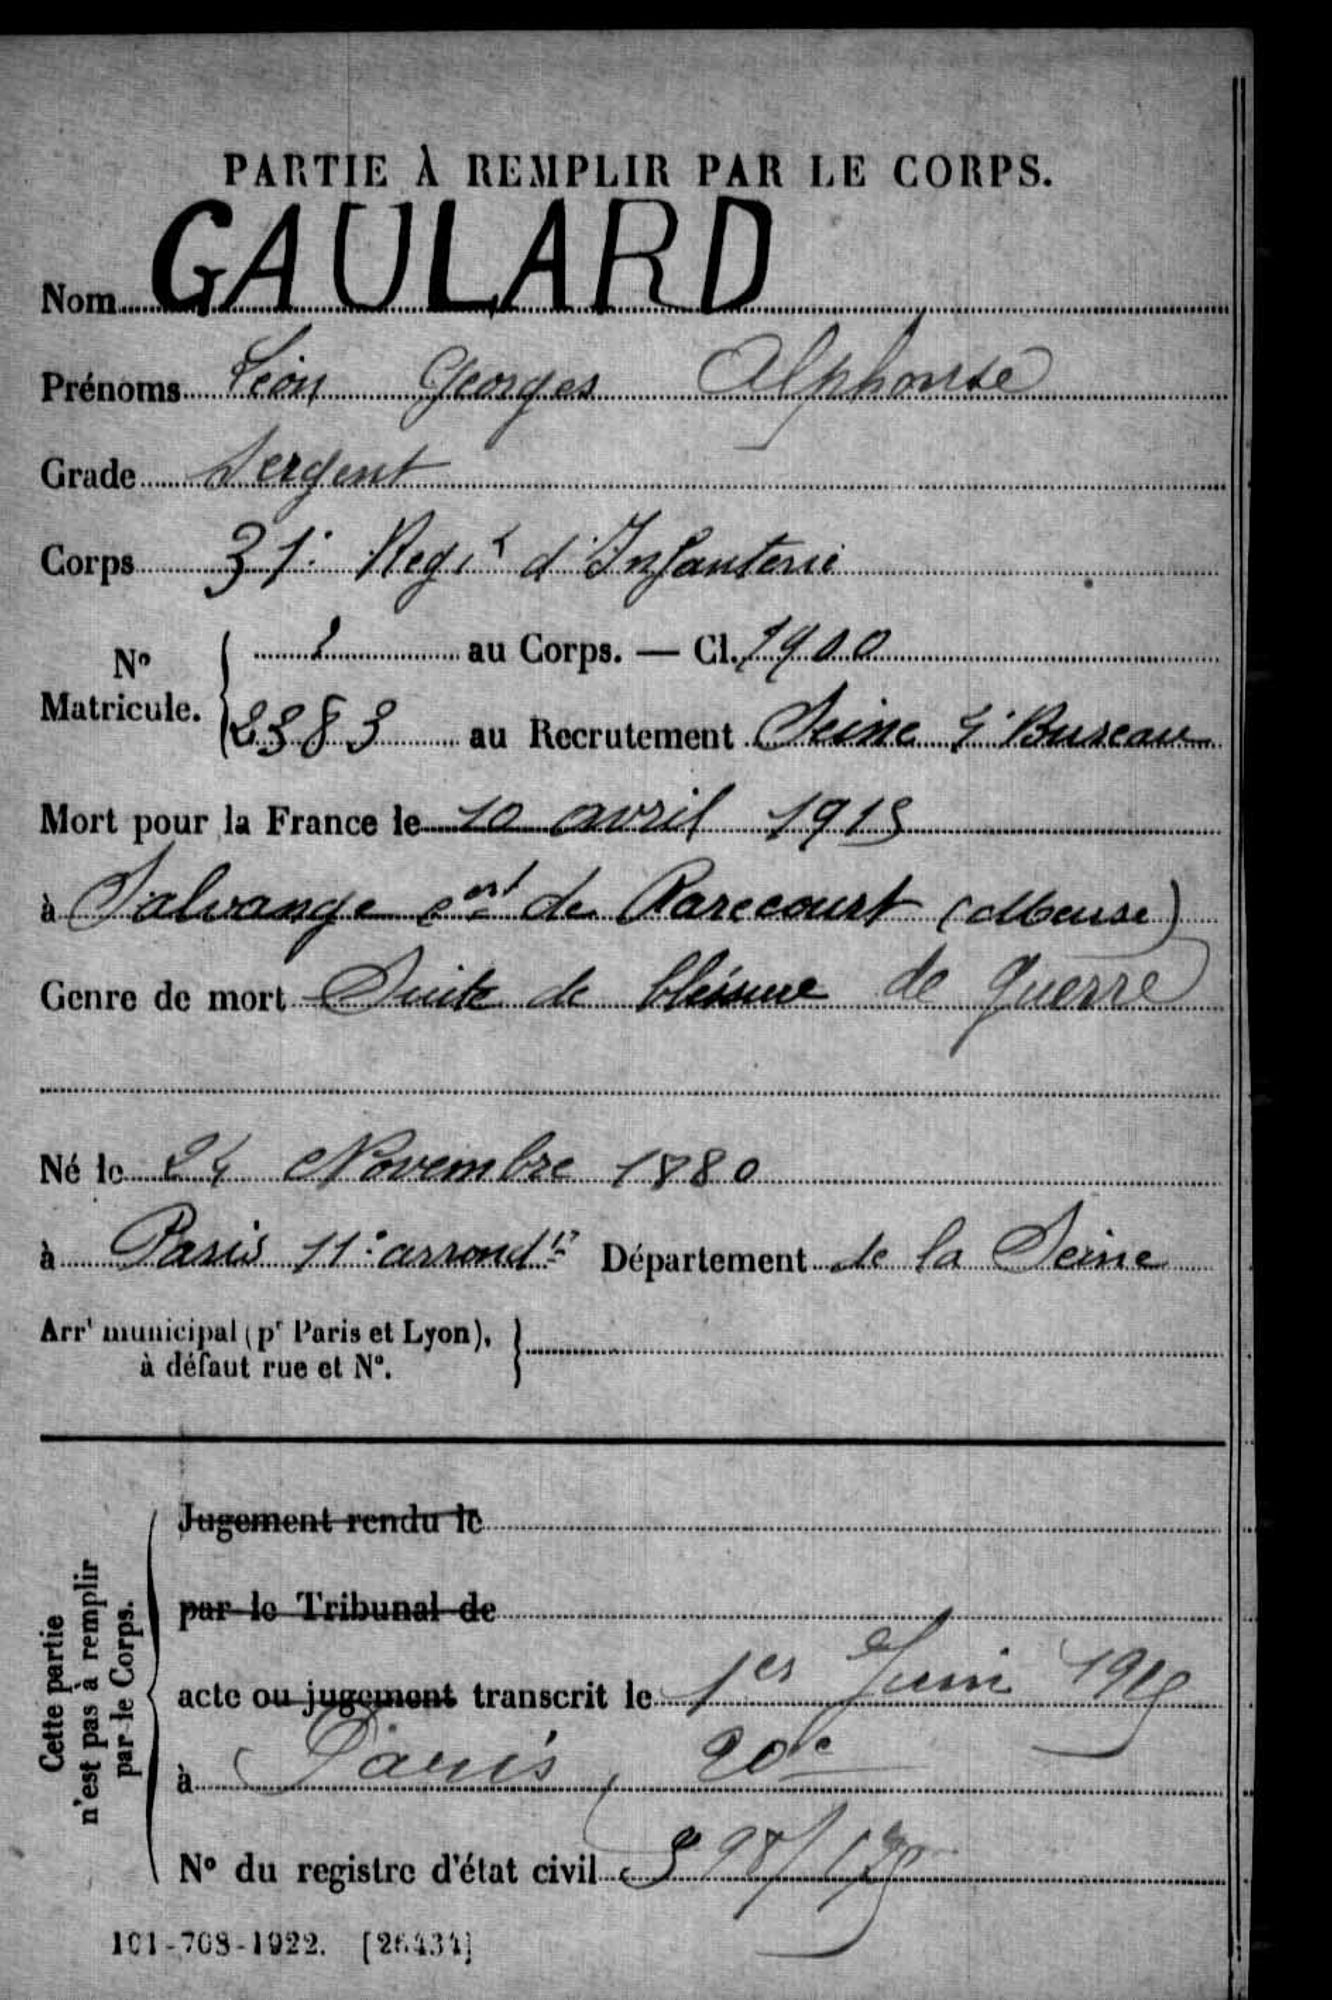 PARTIE À REMPLIR PAR LE CORPS.
Nom GAULARD
Prénoms Léon Georges Alphonse
Grade Sergent
Corps 31e Regit d'Infanterie
N° Matricule. { au Corps. — Cl. 1900
2383 au Recrutement Seine 4e Bureau
Mort pour la France le 10 avril 1915
à Salvange cne de Rarecourt (Meuse)
Genre de mort Suite de blessure de guerre
Né le 24 Novembre 1880
à Paris 11e arrondt Département de la Seine
Arrt municipal (pr Paris et Lyon), à défaut rue et N°. }
Cette partie n'est pas à remplir par le Corps.
Jugement rendu le
par le Tribunal de
acte ou jugement transcrit le 1er Juin 1915
à Paris, 20e
N° du registre d'état civil
101-708-1922. [26434]